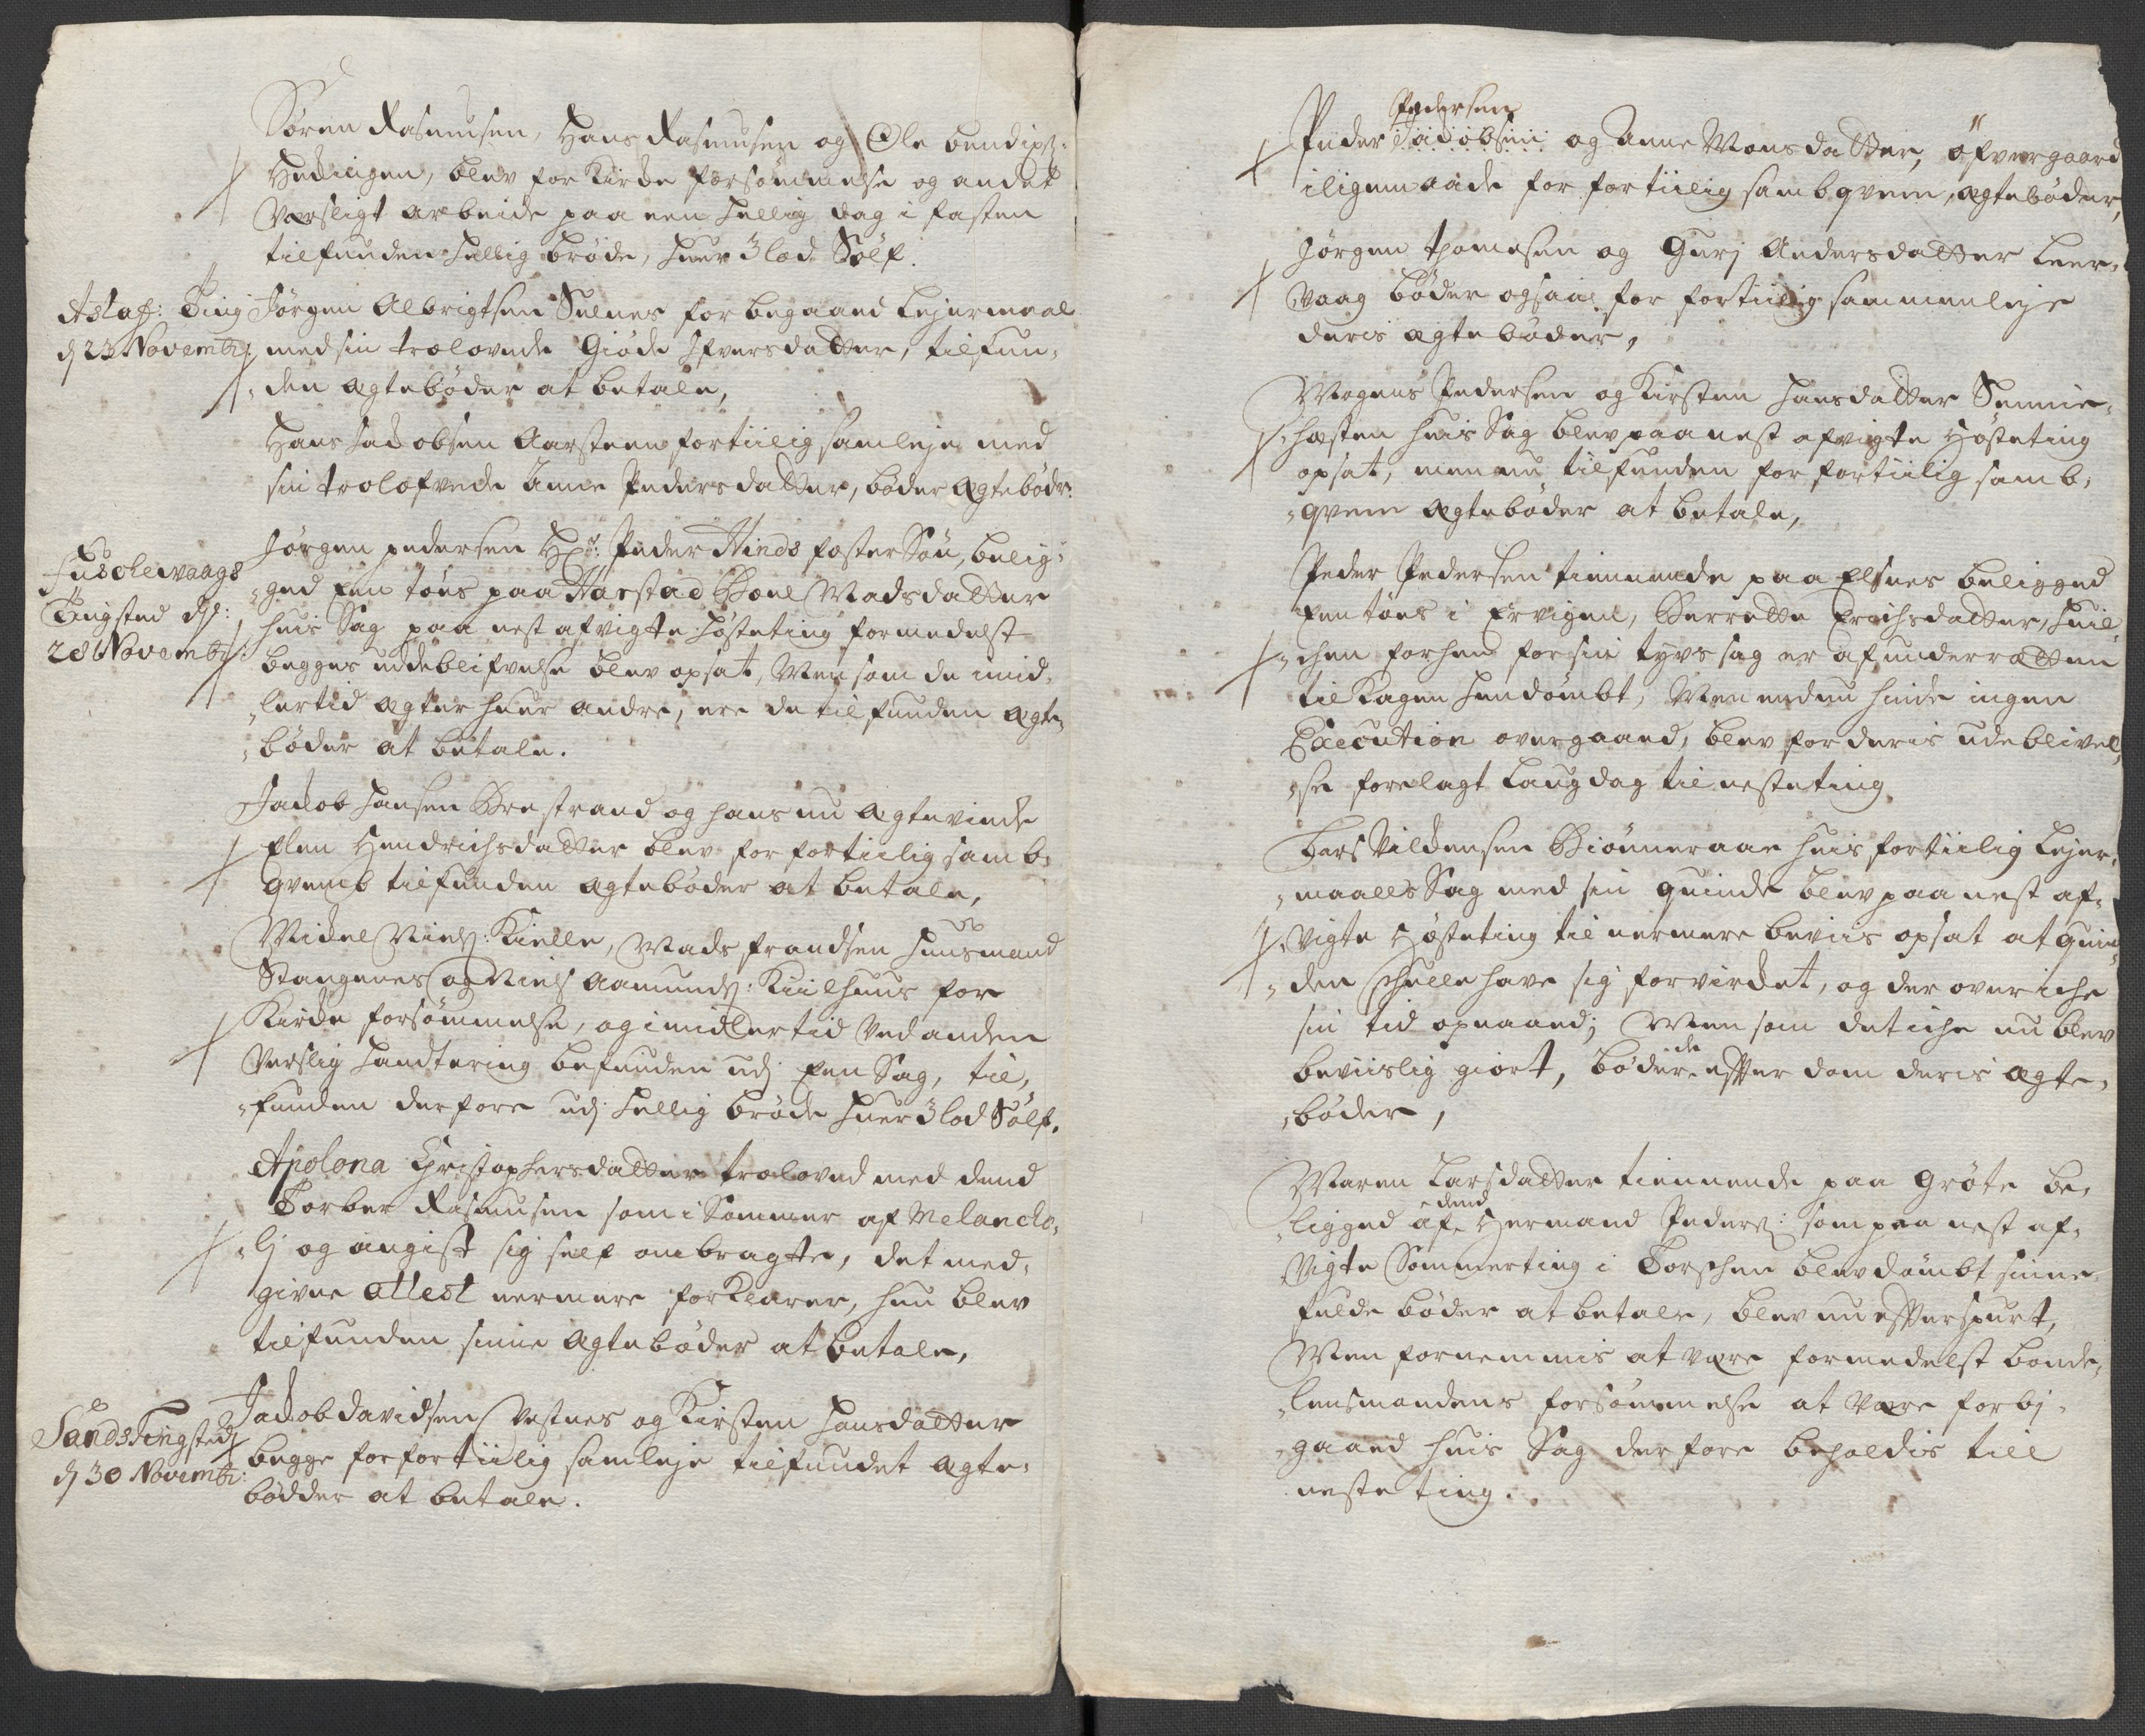 Sören Rasmusen, Hans Rasmusen og Ole bendixs:
Hedingen, blev for Kirche forsömmelse og andet
Versligt arbeide paa een hellig dag i fasten
tilfunden hellig bröde, huer 3 lod Sölf.
Astaf: Ting
d 23 Novembr:
Jörgen Albrigtsen Sulnes for begaaed Lejermaal
med sin trolovede Giöde Ifversdatter, tilfun-
den ægteböder at betale,
Hans Jacobsen Aarsteen fortiilig samleje med
sin trolofvede Anne Pedersdatter, böder Ægtebödr:
Tingsted d:
28 Novembr:
Jörgen pedersen Hr: Peder Hinds foster Sön, belig-
ged een töes paa Harstad Boel Madsdatter
huis Sag paa nest afvigte Hösteting formedelst
begges udeblifvelse blev opsat, Men som de imid-
lertid ægter huer andre, ere de tilfunden ægte-
böder at betale.
Jacob Hansen Brestrand og hans nu ægtevinde
Elen Hendrichsdatter blev for fortiilig samb-
qvemb tilfunden ægteböder at betale,
Michel Niels: Kielle, Mads frandsen huusmand
Stangenes og Niels Aamunds: Kiilhuus for
Kirche forsömmelse, og imidlertid ved anden
Verslig Handtering befunden udj Een Sag, til-
funden derfore udj hellig bröde huer 3 lod Sölf.
Apolona Christophersdatter troloved med dend
Torber Rasmusen som i Sommer af Melancho-
lj og angist sig self ombragte, det med-
givne attest nermere forklarer, hun blev
tilfunden sine ægteböder at betale,
Sands Tingsted
d 30 Novembr:
Jacob davidsen Vestnes og Kirsten Hansdatter
begge for fortiilig samleje tilfundet ægte-
bödder at betale.
Pedersen
Peder Jacobsen og Anne Monsdatter, öfvergaard
iligemaade for fortiilig sambqvem, ægteböder,
Jörgen thomesen og Gurj Andersdatter Leer-
vaag böder ogsaa for fortiilig sammenleje
deris ægteböder,
Mogens Pedersen og Kirsten Hansdatter Sennie-
hesten huis Sag blev paa nest afvigte Hösteting
opsat, men nu tilfunden for fortiilig samb-
qvem ægteböder at betale,
Peder Pedersen tiennende paa Elsnes beligged
Een töes i Ervigen, Berrette Erichsdatter, huil-
chen forhen for sin tyvs sag er af underretten
til Kagen Hendömbt, Men endnu hinde ingen
Execution overgaaed, blev for deris udeblivel-
se forelagt Laugdag til nesteting.
Lars Vildensen Biönneraae huis fortiilig Lejer-
maalls Sag med sin quinde blev paa nest af-
vigte Hösteting til nermere beviis opsat at quin-
den schulle have sig forvirchet, og der over iche
sin tid opnaaed; Men som det iche nu blev
beviislig giort, böder de efter dom deris ægte-
böder,
Maren Larsdatter tiennende paa Gröte be-
ligged af dend Hermand Peders: som paa nest af-
vigte Sommerting i Torschen blev dömbt sinne
fulde böder at betale, blev nu efterspurt,
Men fornemmis at være formedelst bonde-
lensmandens forsömmelse at være forbj-
gaaed huis Sag derfore beholdis till
neste ting.